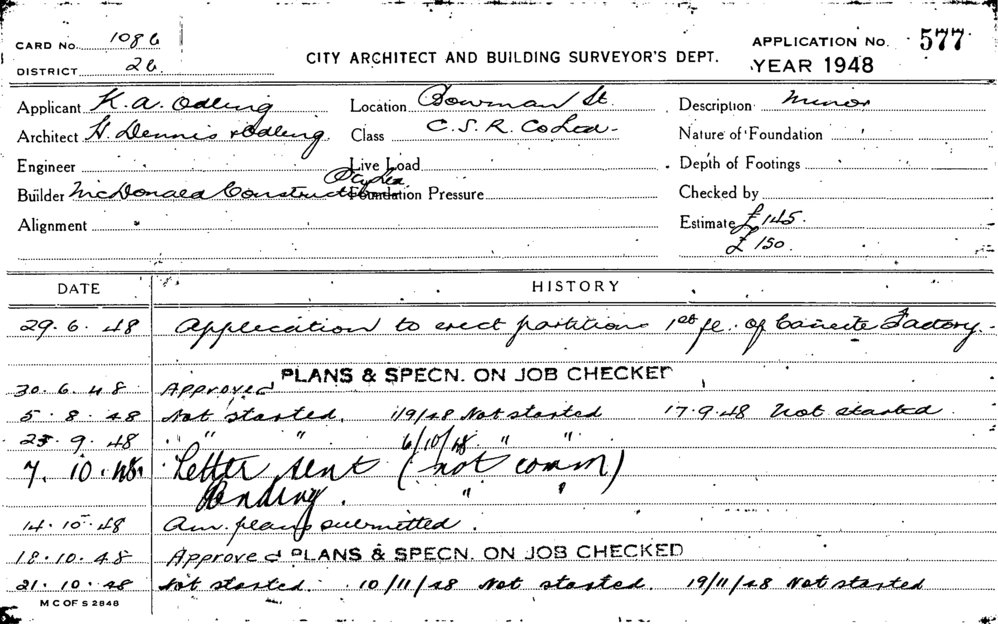 CARD No. 1086
DISTRICT 26
CITY ARCHITECT AND BUILDING SURVEYOR'S DEPT.
APPLICATION No. 577
YEAR 1948
Applicant K. A. Odling Location Bowman St. Description Minor
Architect H. Dennis & Odling Class C. S. R. Co Ltd Nature of Foundation
Engineer Live Load Depth of Footings
Builder McDonald Construction Pty Ltd Foundation Pressure Checked by
Alignment Estimate £145.
£150.
DATE HISTORY
29.6.48 Application to erect partitions 1st fl. of Caneite Factory.
PLANS & SPECN. ON JOB CHECKED
30.6.48 Approved
5.8.48 Not started. 1/9/48 Not started 17.9.48 Not started.
23.9.48 " " 6/10/48 " "
7.10.48. Letter sent (not comm)
Pending. " "
14.10.48 Am. plans submitted.
18.10.48 Approved PLANS & SPECN. ON JOB CHECKED
21.10.48 Not started. 10/11/48 Not started. 19/11/48 Not started
M C OF S 2848